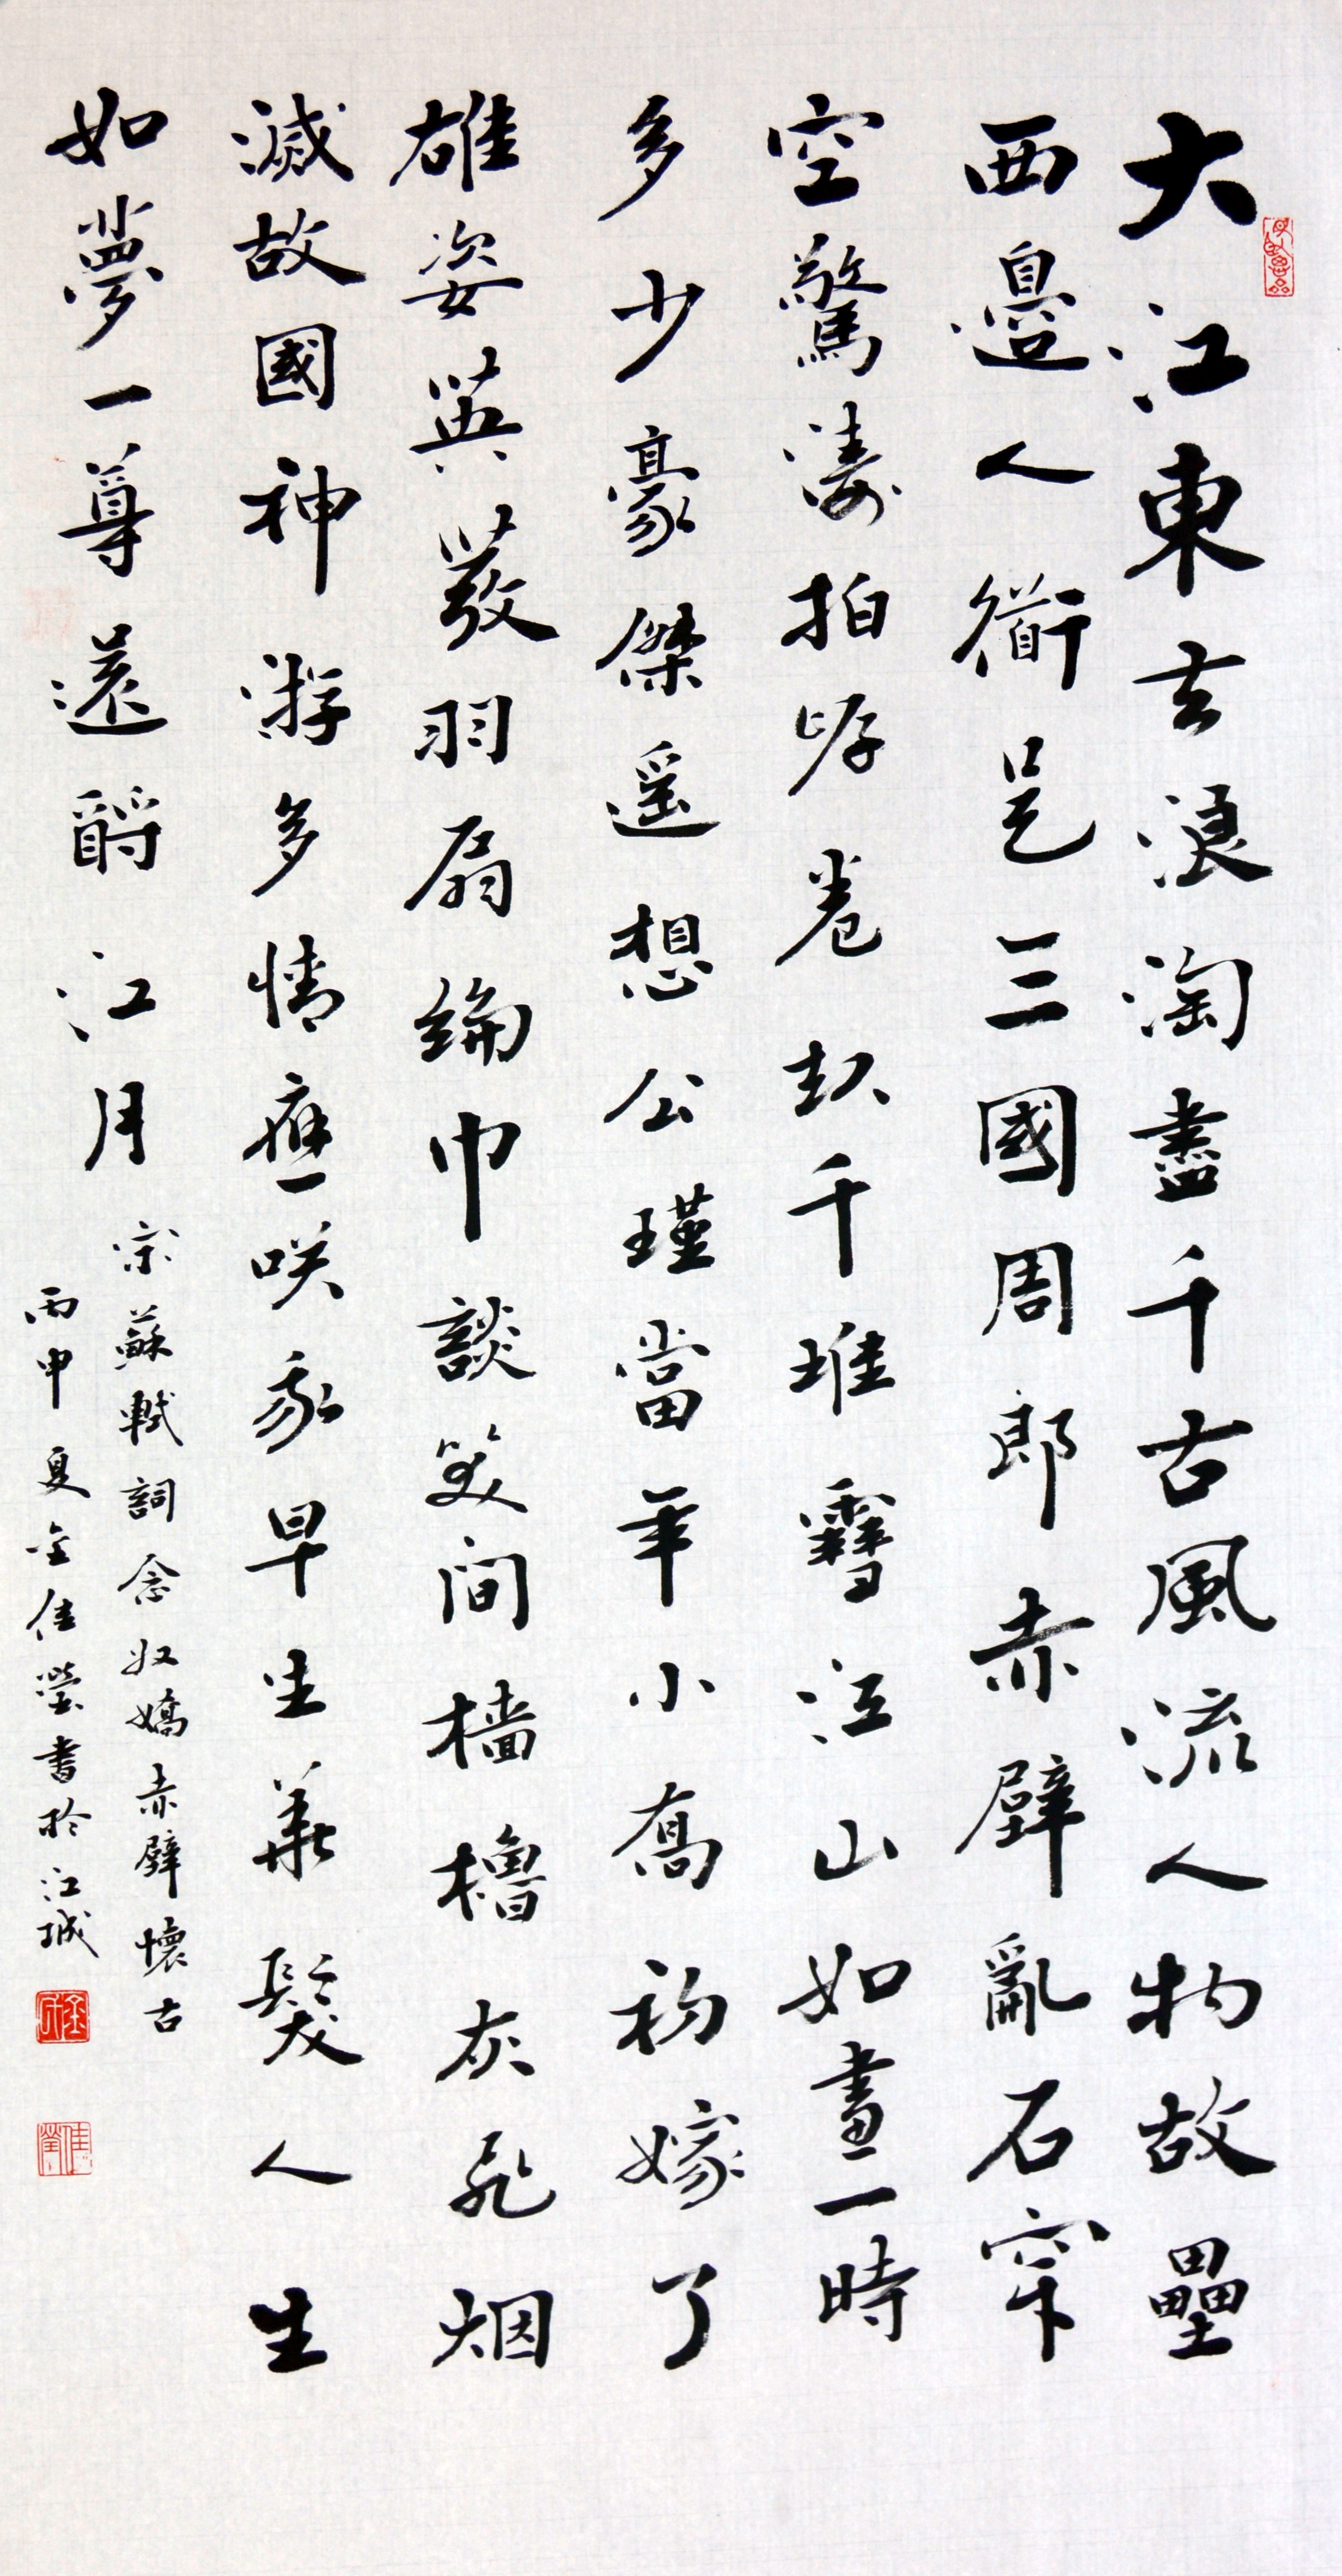 大江東去浪淘盡千古風流人物故壘
西邊人衜是三國周郎赤壁亂石穿
空驚濤拍岸卷起千堆雪江山如畫一時
多少豪傑遥想公瑾當年小喬初嫁了
雄姿英發羽扇綸巾談笑間檣櫓灰飛烟
滅故國神游多情應咲我早生華髮人生
如夢一尊還酹江月
宋蘇軾詞念奴嬌赤壁懷古
丙申夏金佳瑩書於江城
佳瑩